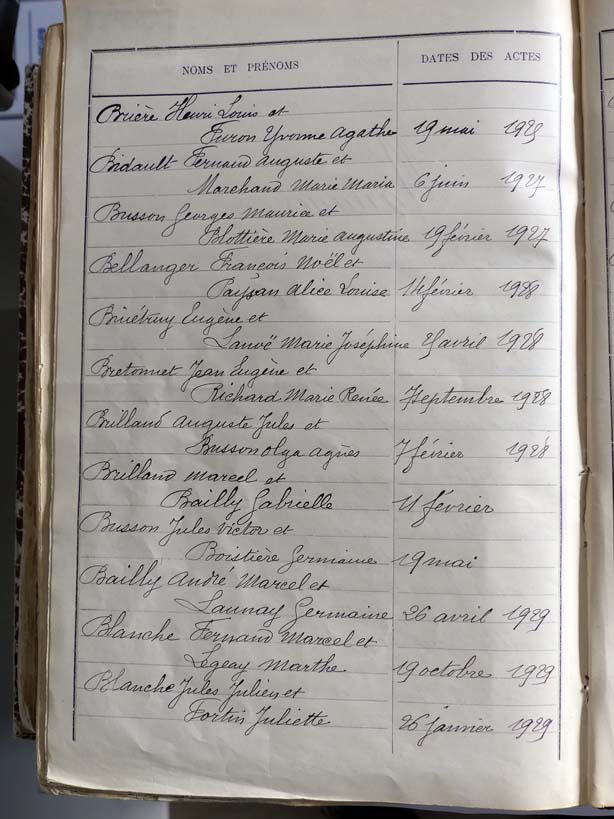 NOMS ET PRÉNOMS DATES DES ACTES
Brière Henri Louis et
Furon Yvonne Agathe 19 mai 1923
Bidault Fernand Auguste et
Marchand Marie Maria 6 juin 1927
Busson Georges Maurice et
Blottière Marie Augustine 19 février 1927
Bellanger François Noël et
Paysan Alice Louise 14 février 1928
Eugène et
Lanoë Marie Joséphine avril 1928
Bretonnet Jean Eugène et
Richard Marie Renée 7 septembre 1928
Brilland Auguste Jules et
Busson Olga Agnès 7 février 1928
Brilland Marcel et
Bailly Gabrielle 11 février
Busson Jules Victor et
Boistière Germaine 19 mai
Bailly André Marcel et
Launay Germaine 26 avril 1929
Blanche Fernand Marcel et
Legeay Marthe 19 octobre 1929
Blanche Jules Julien et
Fortin Juliette 26 janvier 1929